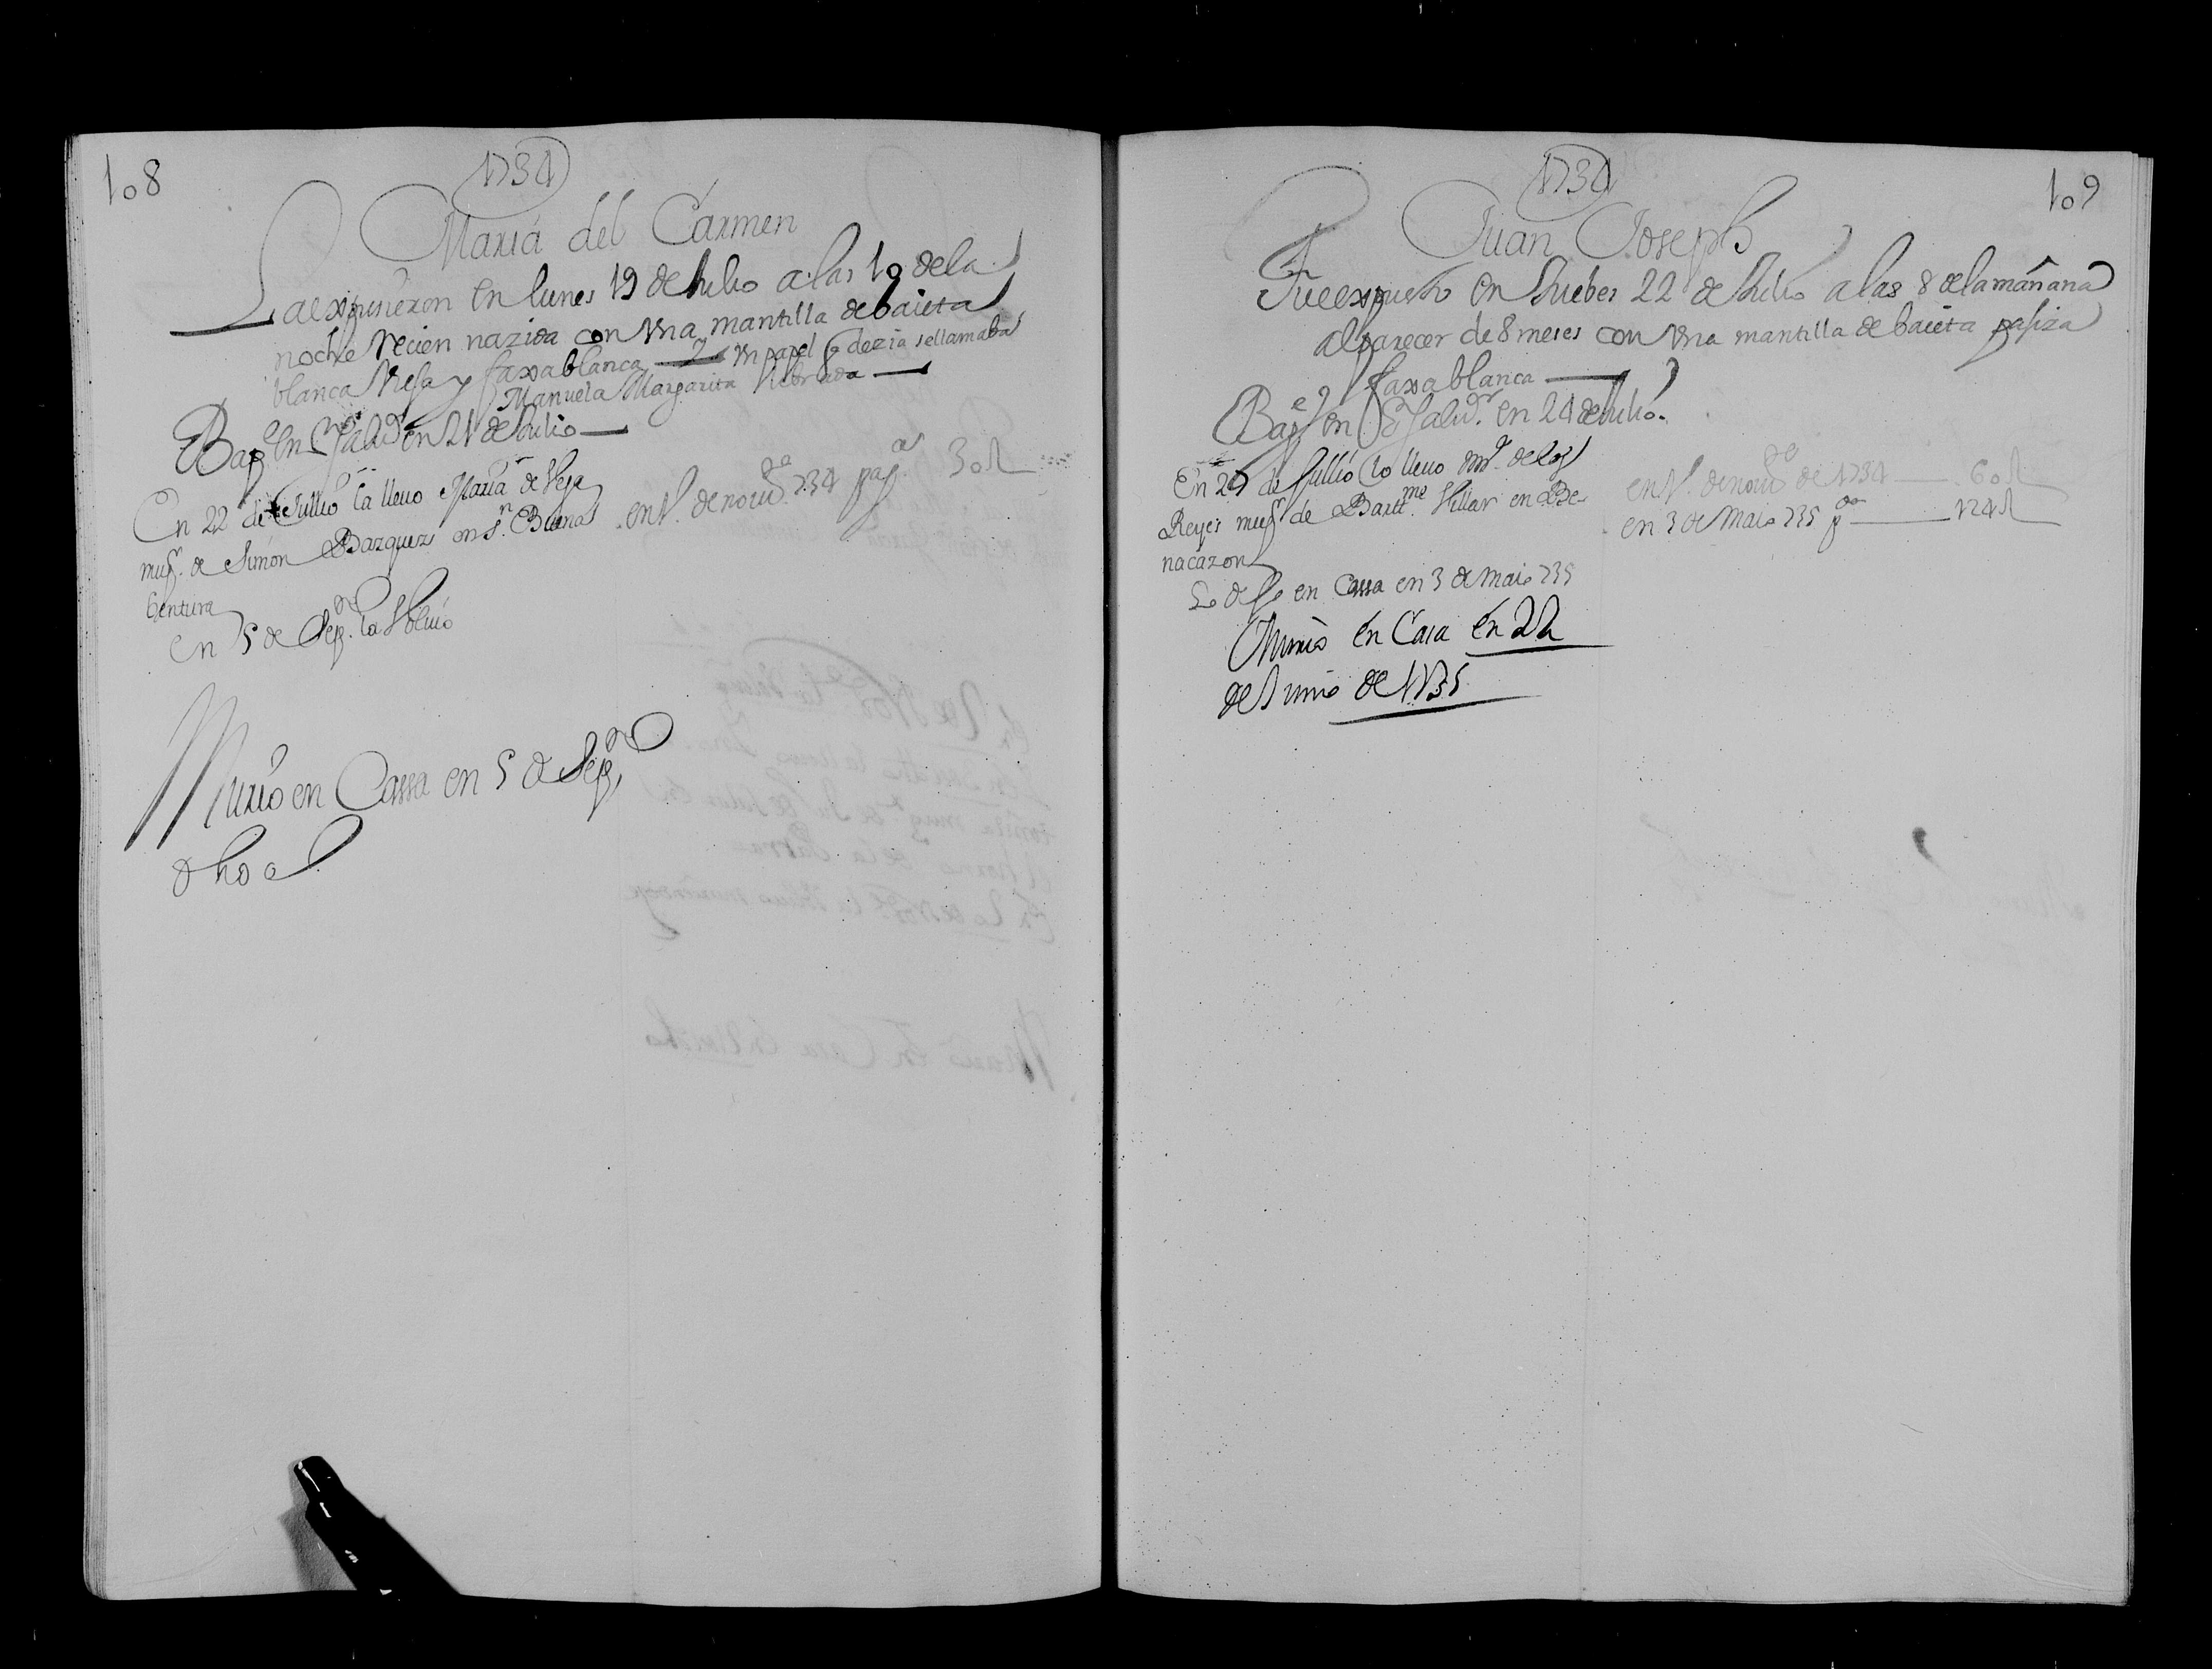 108
1734
Maria del Carmen
La expusieron en lunes 19 de Julio a las 10 de la
noche recien nazida con una mantilla de baieta
blanca viesa y faxa blanca y un papel q dezia se llamaba
Manuela Margarita
Bapᵉ en Sʳ Salvᵒʳ en 21 de Julio
En 22 de Jullio la lleuo Maria de Vega
mugʳ de Simon Bazquez en Sⁿ Buena
bentura
en 1º de novᵉ 734 pagᵒˢ 30 R
en 5 de Sepʳᵉ la Voluio
Murio en Cassa en 5 de Sepʳᵉ
dho
109
1734
Juan Joseph
Fue expuesto en Juebes 22 de Julio a las 8 de la mañana
al parecer de 8 meses con una mantilla de baieta pasiza
faxa blanca
Bapᵉ en Sʳ Salvᵒʳ en 24 de Julio
En 29 de Jullio lo lleuo Mᵃ de los
Reyes mugʳ de Bartᵐᵉ Villar en Be-
nacazon
en 1º de novᵉ de 1734 60 R
en 3 de Maio 735 pᵈᵒ 124 R
Lo dejo en Cassa en 3 de Maio 735
Murio en Casa en 22
de Junio de 1735